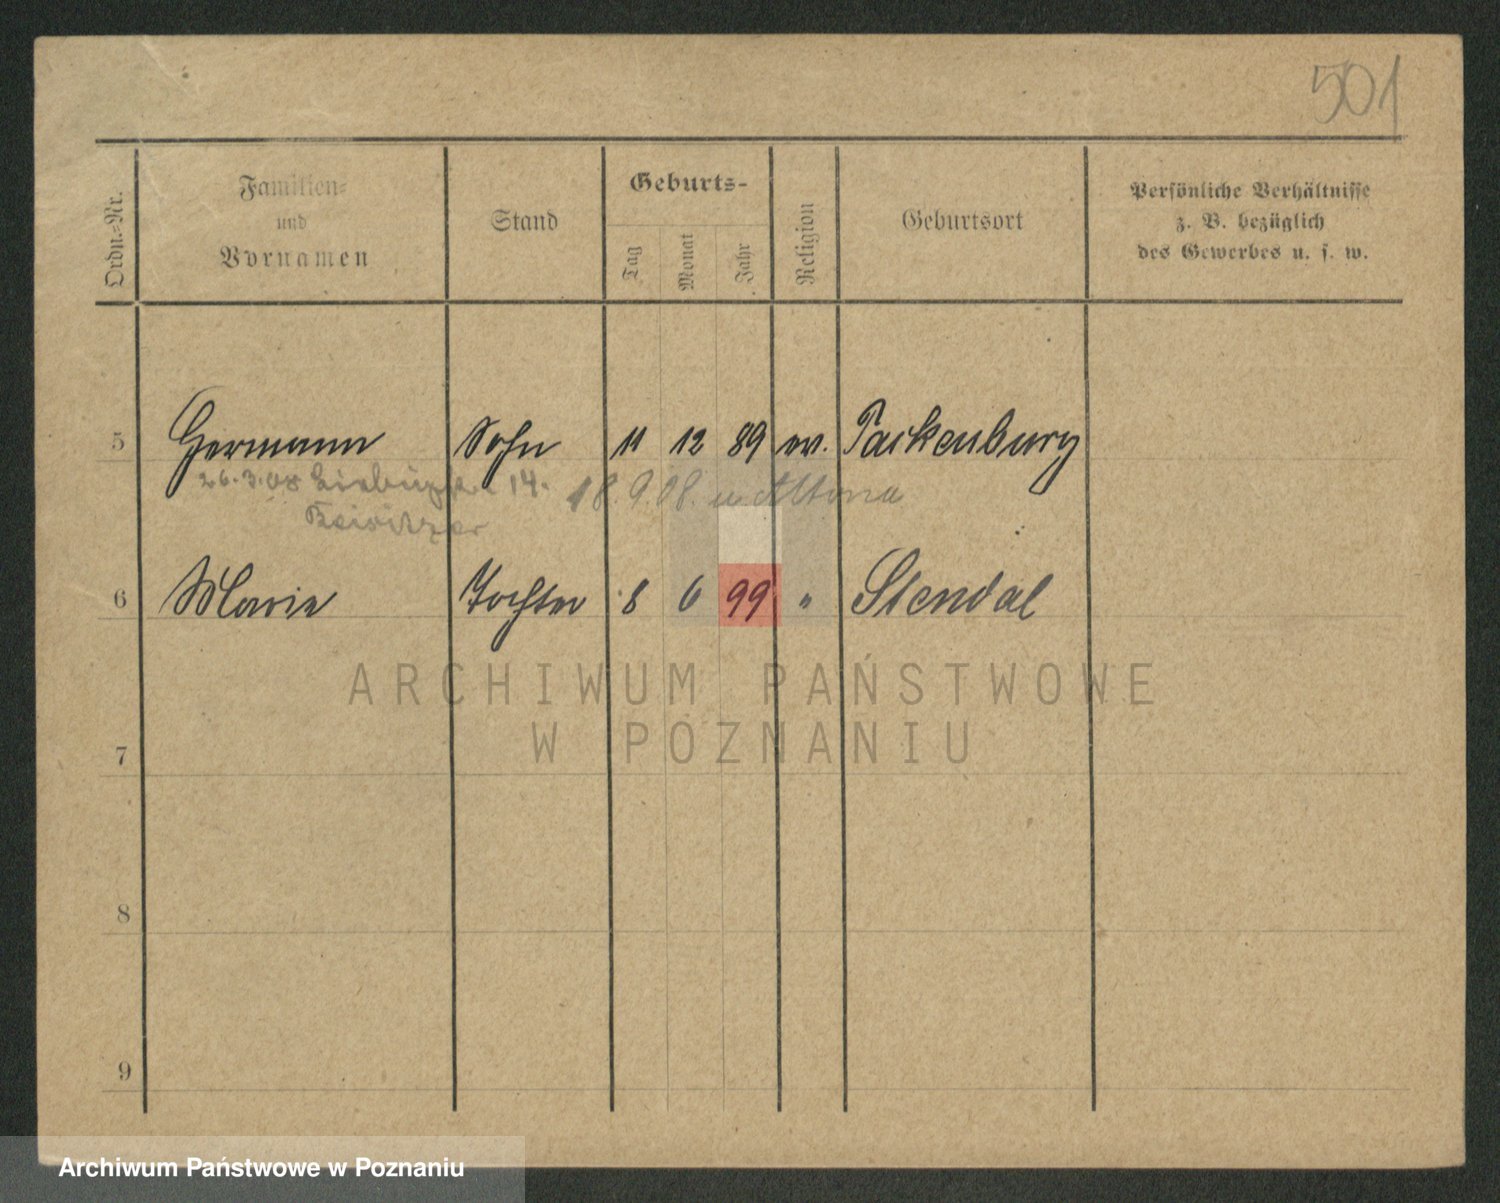 501
Ordn.-Nr.
Familien-
und
Vornamen
Stand
Geburts-
Tag
Monat
Jahr
Religion
Geburtsort
Persönliche Verhältnisse
z. B. bezüglich
des Gewerbes u. s. w.
5 Hermann Sohn 11 12 89 ev. Packenburg
26.3.08 14. 18.9.08. n Altona
6 Marie Tochter 8 6 99 " Stendal
ARCHIWUM PAŃSTWOWE
W POZNANIU
7
8
9
Archiwum Państwowe w Poznaniu